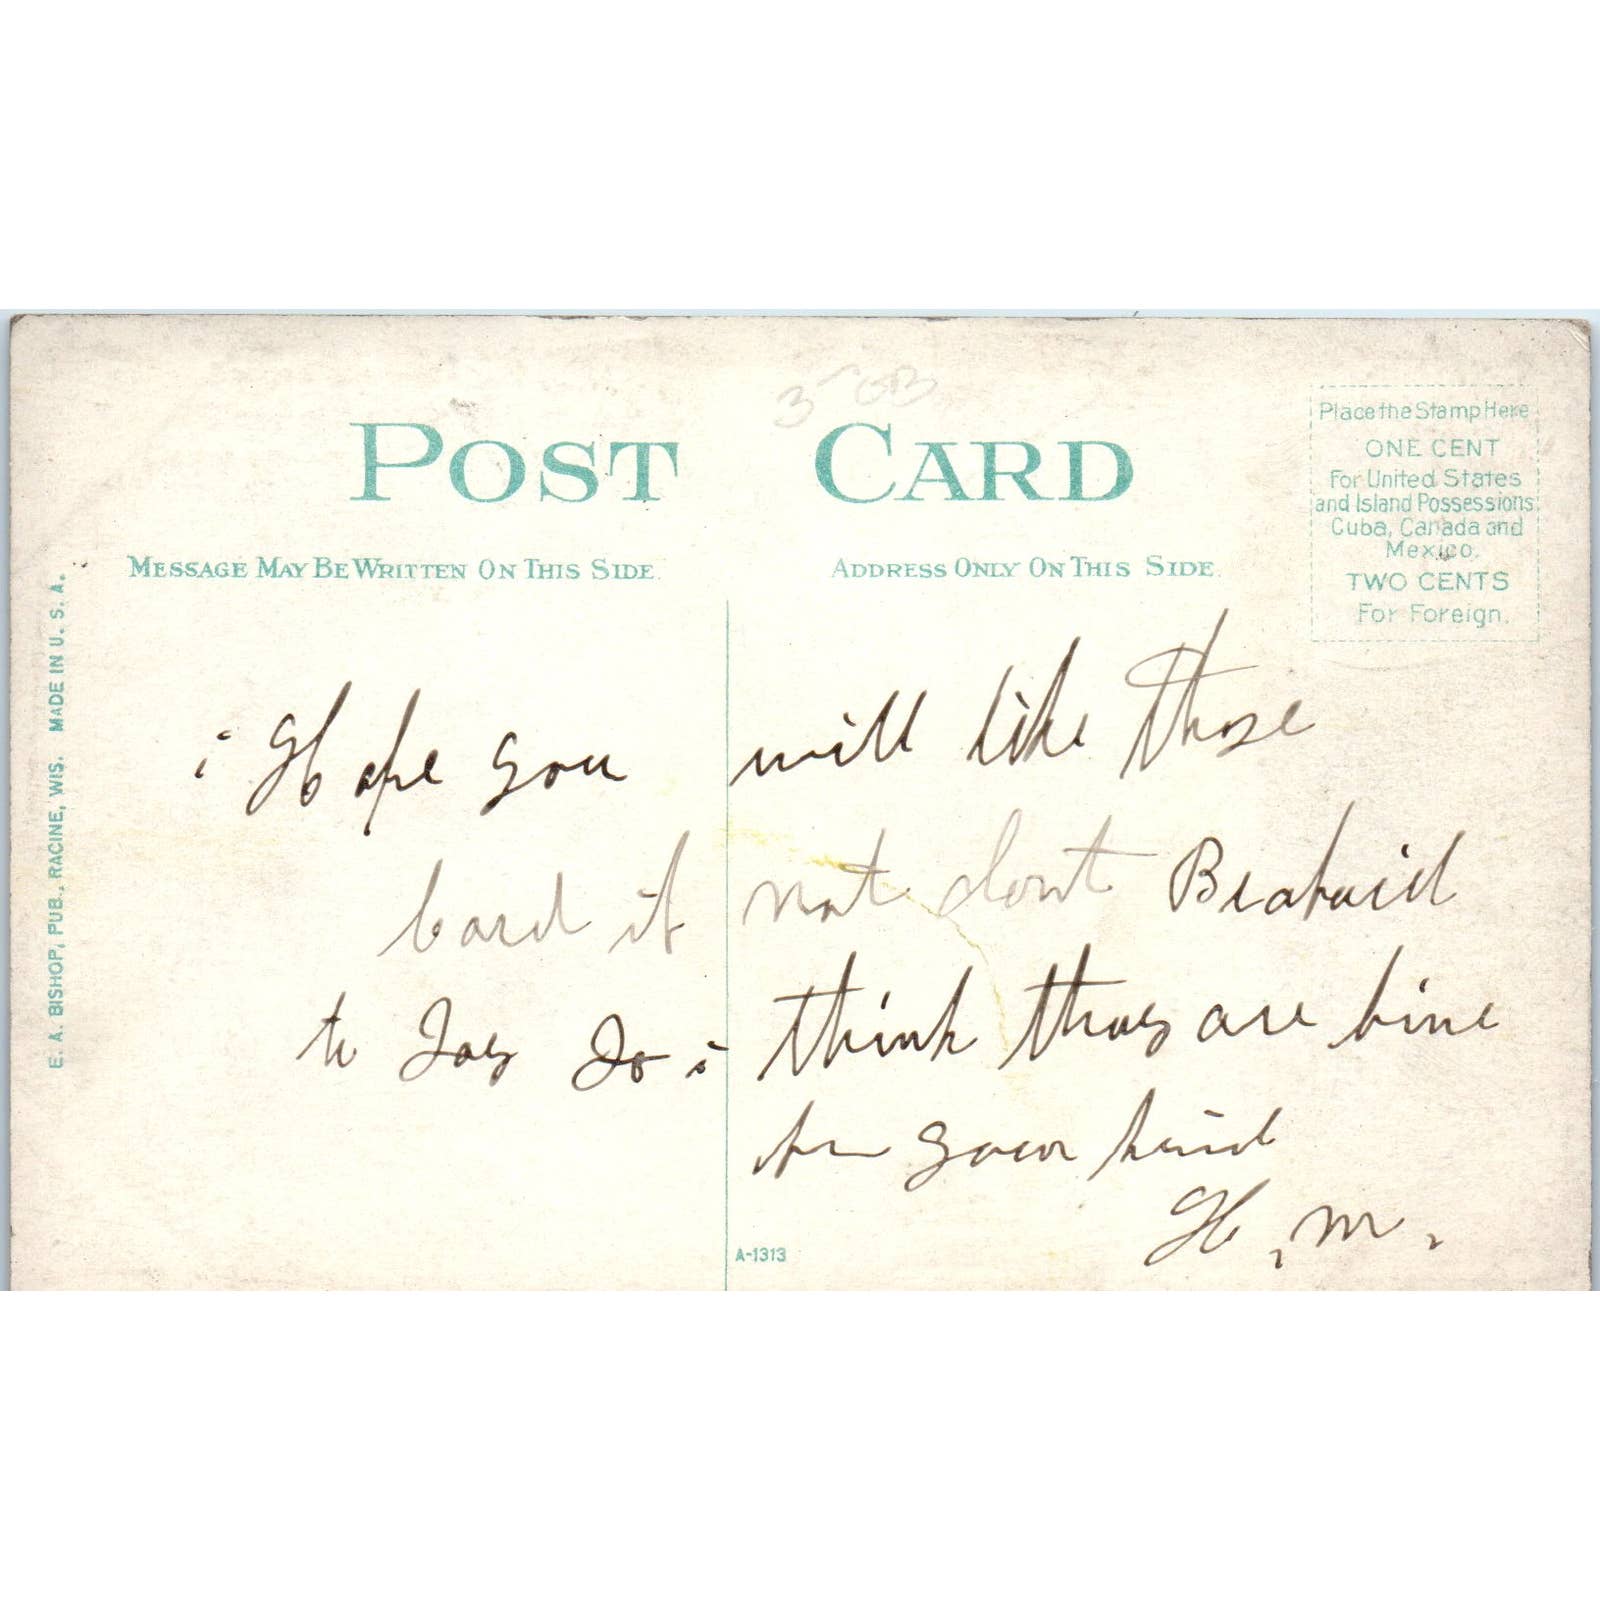 3 - GB
POST CARD
Place the Stamp Here
ONE CENT
For United States
and Island Possessions,
Cuba, Canada and
Mexico.
TWO CENTS
For Foreign.
MESSAGE MAY BE WRITTEN ON THIS SIDE.
ADDRESS ONLY ON THIS SIDE.
E. A. BISHOP, PUB., RACINE, WIS. MADE IN U. S. A.
i Hope you will like those
card if not dont
to say so i think thay are fine
for your kind
H. M.
A-1313